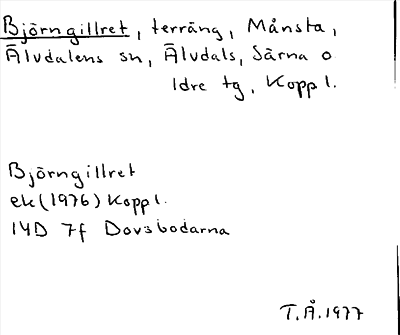 Björngillret, terräng, Månsta,
Älvdalens sn, Älvdals, Särna o
Idre tg, Koppl.
Björngillret
ek (1976) Koppl.
14D 7f Dovsbodarna
T.Å. 1977